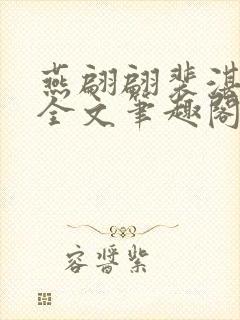 燕翩翩裴湛
全文笔趣阁
容晋紫